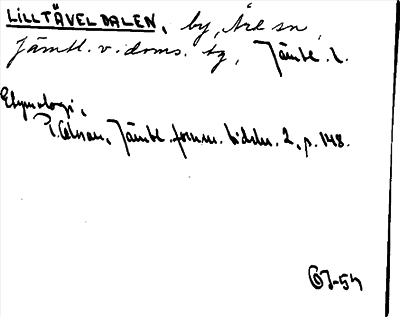 LILLTÄVELDALEN, by, Åre sn,
Jämtl. v. doms. tg, Jämtl. l.
Etymologi,
P. Jämtl. fornm. tidskr. 2, p. 148.